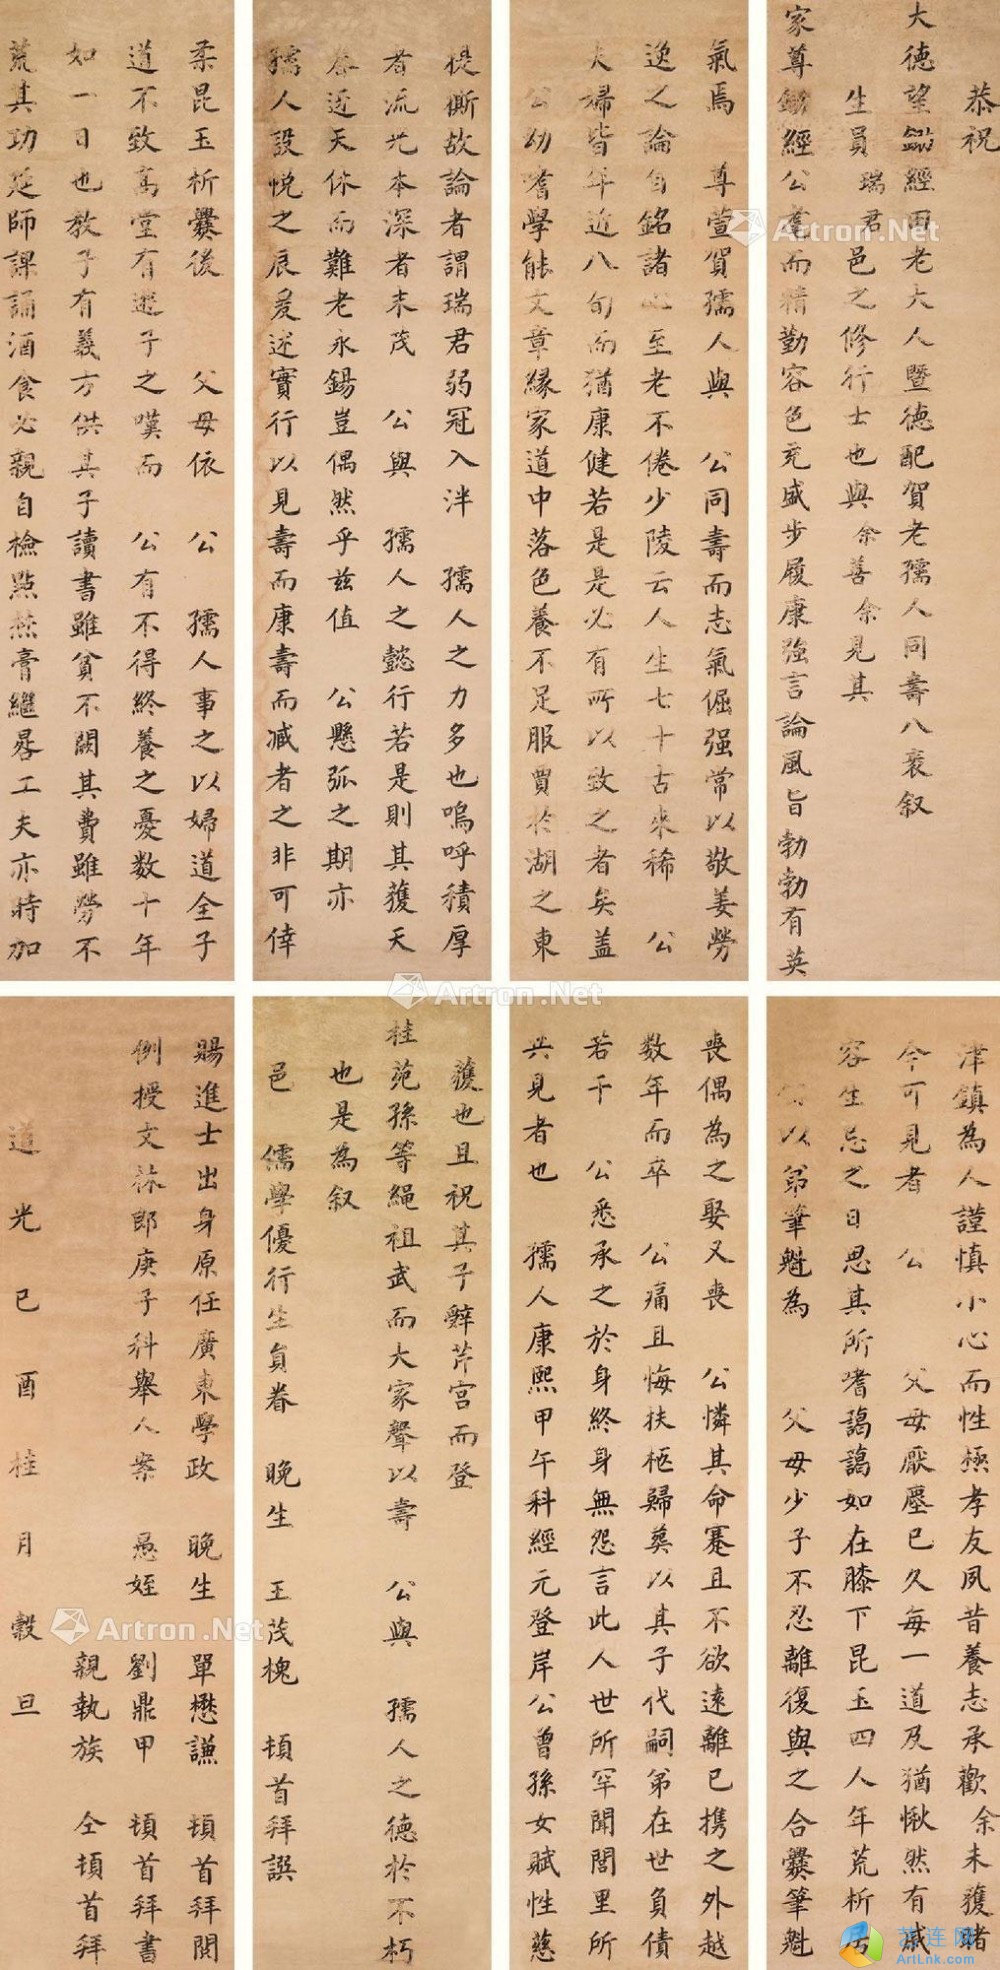 恭祝
大德望鋤經田老大人暨德配賀老孺人同壽八袠叙
生員瑞君邑之修行士也與余善余見其
家尊鋤經公耄而精勤容色充盛步履康強言論風旨勃勃有英
氣焉 尊萱賀孺人與 公同壽而志氣倔强常以敬姜勞
逸之論自銘諸心至老不倦少陵云人生七十古來稀 公
夫婦皆年近八旬而猶康健若是是必有所以致之者矣盖
公幼嗜學能文章緣家道中落色養不足服賈於湖之東
提撕故論者謂瑞君弱冠入泮 孺人之力多也嗚呼積厚
者流光本深者末茂 公與 孺人之懿行若是則其獲天
眷近天休而難老永錫豈偶然乎兹值 公懸弧之期亦
孺人設帨之辰爰述實行以見壽而康壽而臧者之非可倖
柔昆玉析爨後 父母依 公 孺人事之以婦道全子
道不致高堂有遊子之嘆而 公有不得終養之憂数十年
如一日也教子有義方供其子讀書雖貧不闕其費雖勞不
荒其功延師課誦酒食必親自檢點焚膏繼晷工夫亦時加
津鎮為人謹慎小心而性極孝友夙昔養志承歡余未獲睹
今可見者 公 父母厭塵已久每一道及猶愀然有戚
容生忌之日思其所嗜藹藹如在膝下昆玉四人年荒析居
以弟筆魁為 父母少子不忍離復與之合爨筆魁
喪偶為之娶又喪 公憐其命蹇且不欲遠離已携之外越
数年而卒 公痛且悔扶柩歸葬以其子代嗣弟在世負債
若干 公悉承之於身終身無怨言此人世所罕聞閭里所
共見者也 孺人康熙甲午科經元登岸公曾孫女賦性慈
獲也且祝其子辭芹宫而登
桂苑孫等繩祖武而大家聲以壽 公與 孺人之德於不朽
也是為叙
邑 儒學優行生員眷 晚生 王茂槐 頓首拜譔
賜進士出身原任廣東學政 晚生 單懋謙 頓首拜閱
例授文林郎庚子科舉人案 愚姪 劉鼎甲 頓首拜書
親執族 仝頓首拜
道光已酉桂月穀旦
Artron.Net
Artron.Net
Artron.Net
Artron.Net
Artron.Net
艺连网
ArtLnk.com